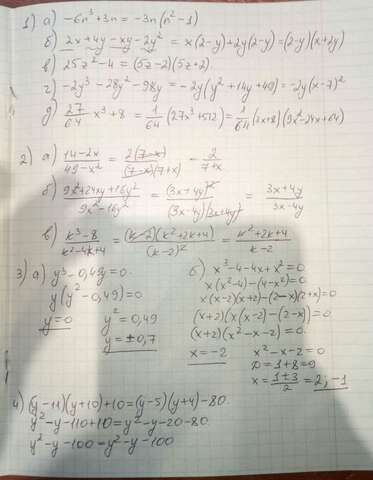 1) а) -6n³+3n = -3n(n²-1)
б) 2x+4y-xy-2y² = x(2-y)+2y(2-y)=(2-y)(x+2y)
в) 25z²-4 = (5z-2)(5z+2)
г) -2y³-28y²-98y = -2y(y²+14y+49)=-2y(x-7)²
д) 27/64 x³+8 = 1/64 (27x³+512)= 1/64 (3x+8)(9x²-24x+64)
2) а) 14-2x/49-x² = 2(7-x)/(7-x)(7+x) = 2/7+x
б) 9x²+24xy+16y²/9x²-16y² = (3x+4y)²/(3x-4y)(3x+4y) = 3x+4y/3x-4y
в) k³-8/k²-4k+4 = (k-2)(k²+2k+4)/(k-2)² = k²+2k+4/k-2
3) а) y³-0,49y=0.
y(y²-0,49)=0
y=0 y²=0,49
y=±0,7
б) x³-4-4x+x²=0
x(x²-4)-(4-x²)=0
x(x-2)(x+2)-(2-x)(2+x)=0
(x+2)(x(x-2)-(2-x))=0
(x+2)(x²-x-2)=0.
x=-2 x²-x-2=0
D=1+8=9
x=1±3/2=2;-1
4) (y-11)(y+10)+10=(y-5)(y+4)-80.
y²-y-110+10=y²-y-20-80.
y²-y-100=y²-y-100